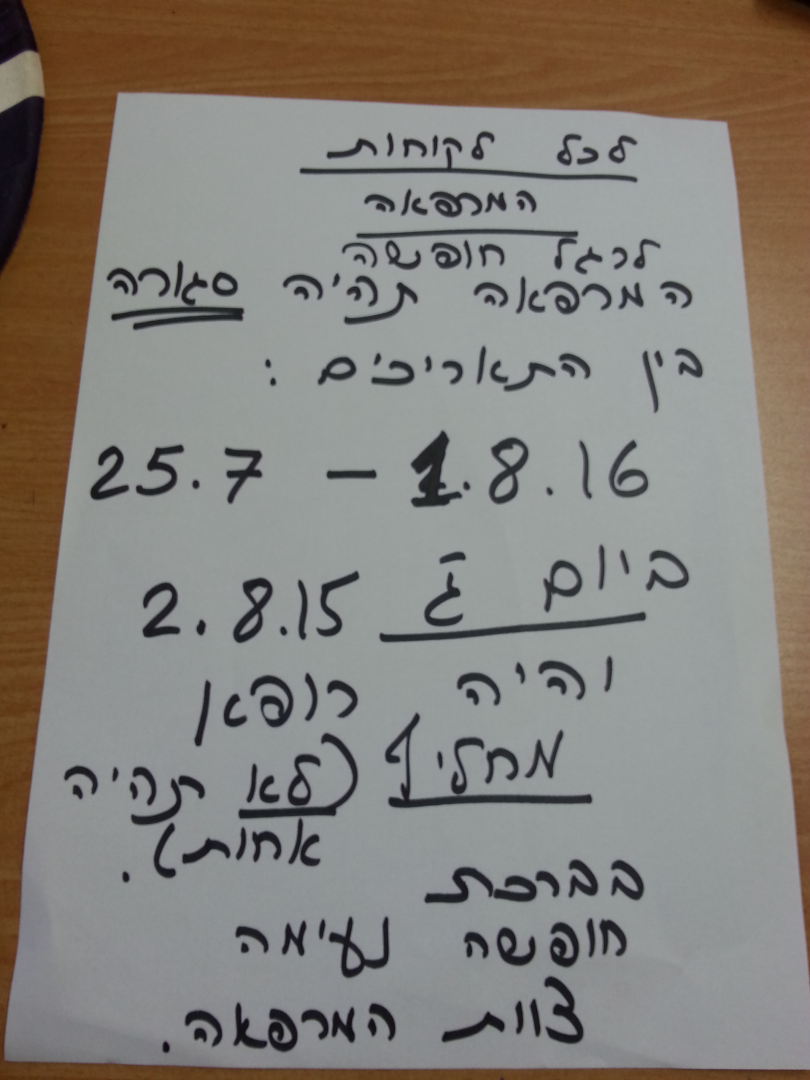 לכל לקוחות
המרפאה
לרגל חופשה
המרפאה תהיה סגורה
בין התאריכים :
25.7 – 1.8.16
ביום ג' 2.8.15
יהיה רופא
מחליף (לא תהיה
אחות).
בברכת
חופשה נעימה
צוות המרפאה.